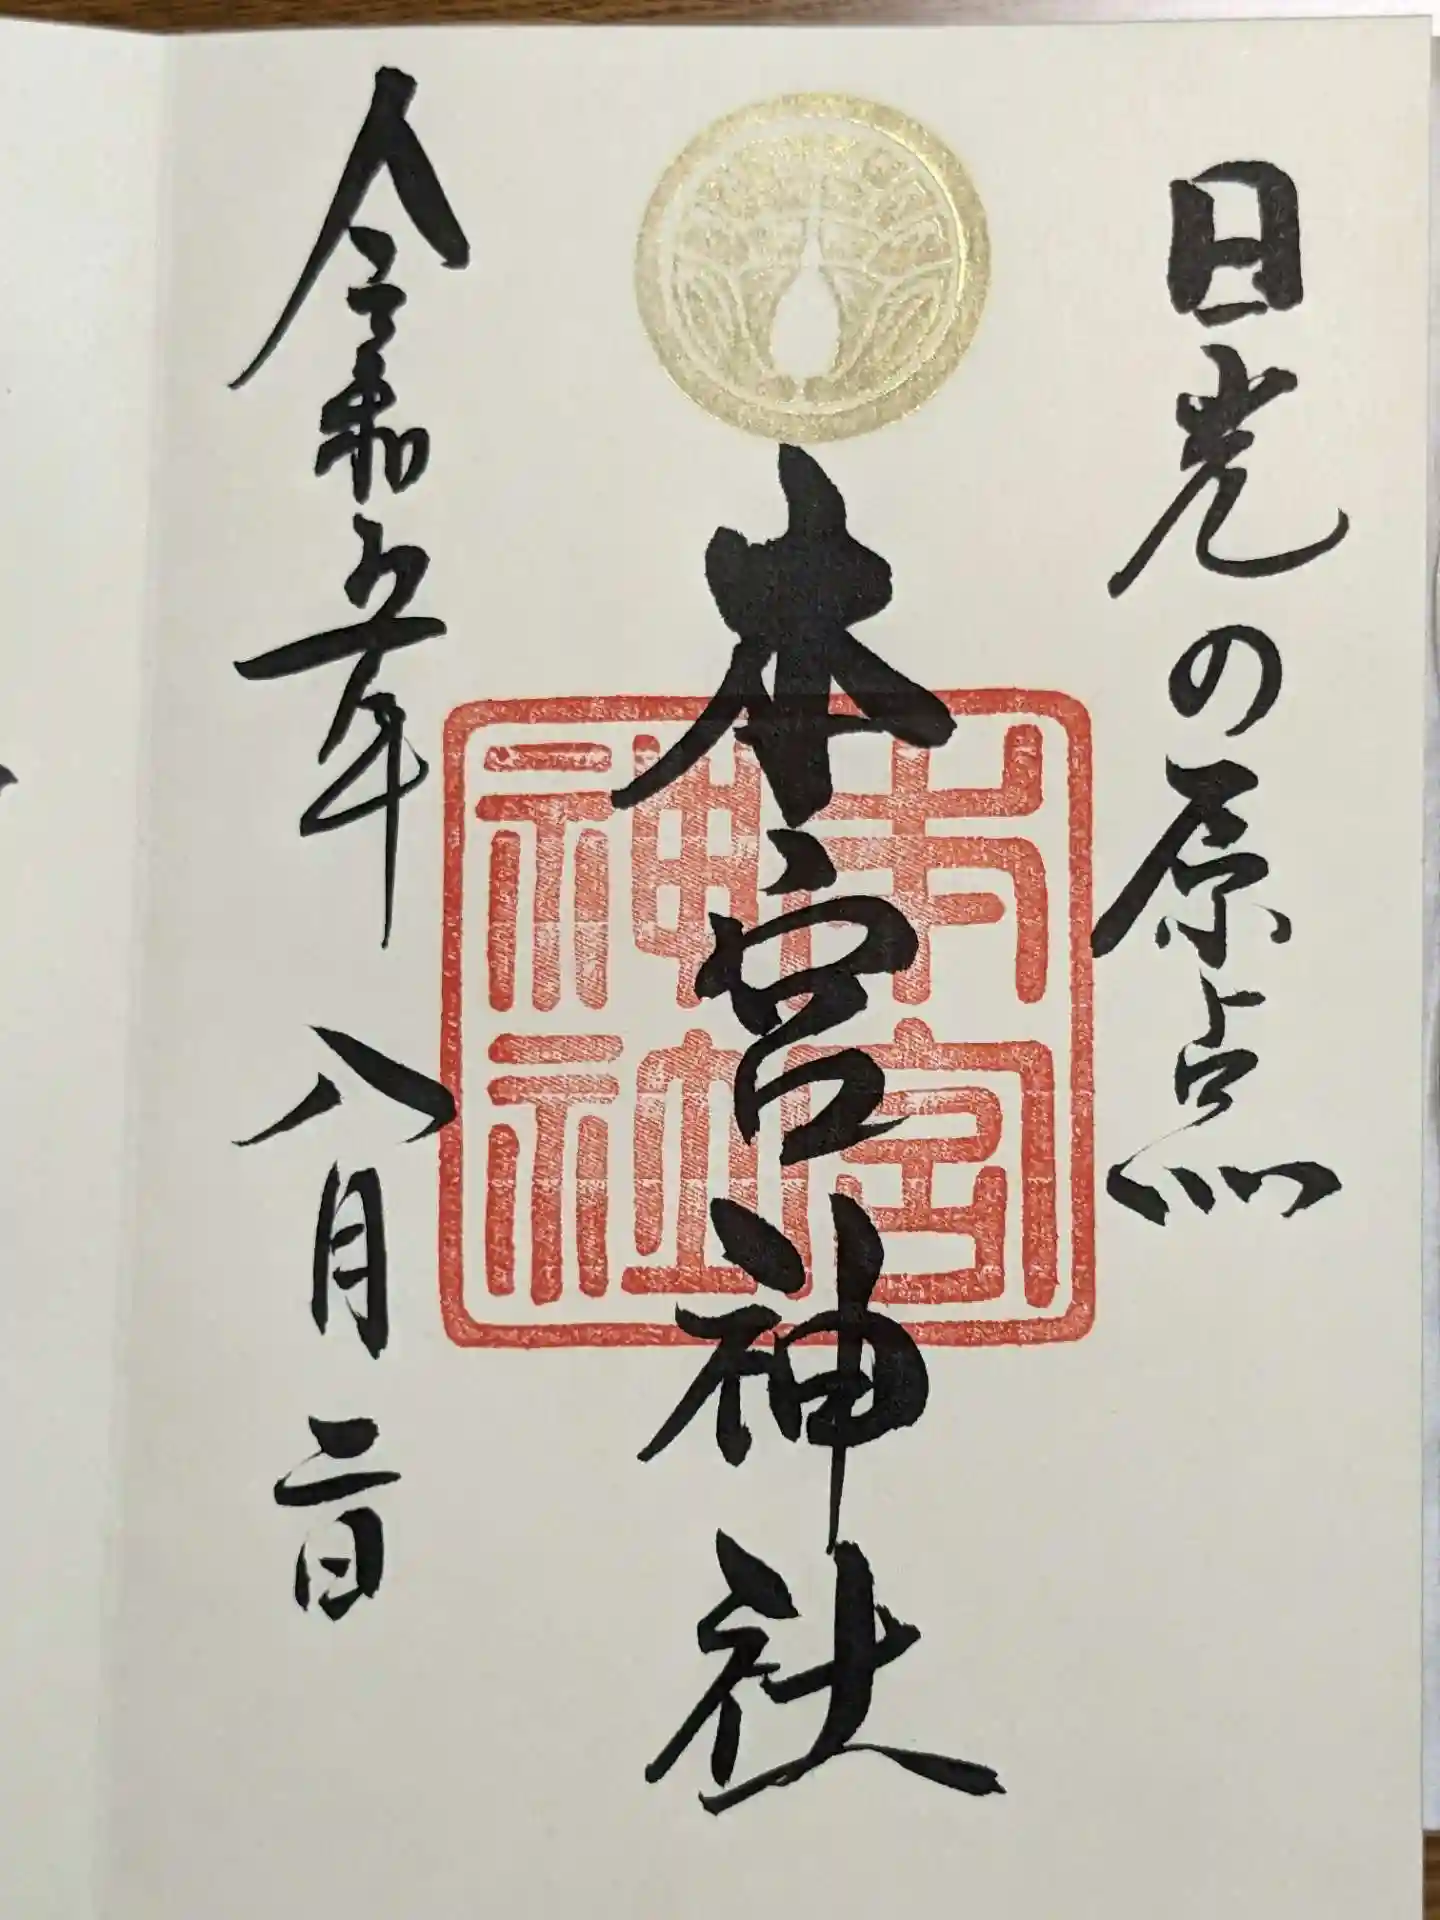 日光の原点
本宮神社
本宮神社
令和五年 八月二日